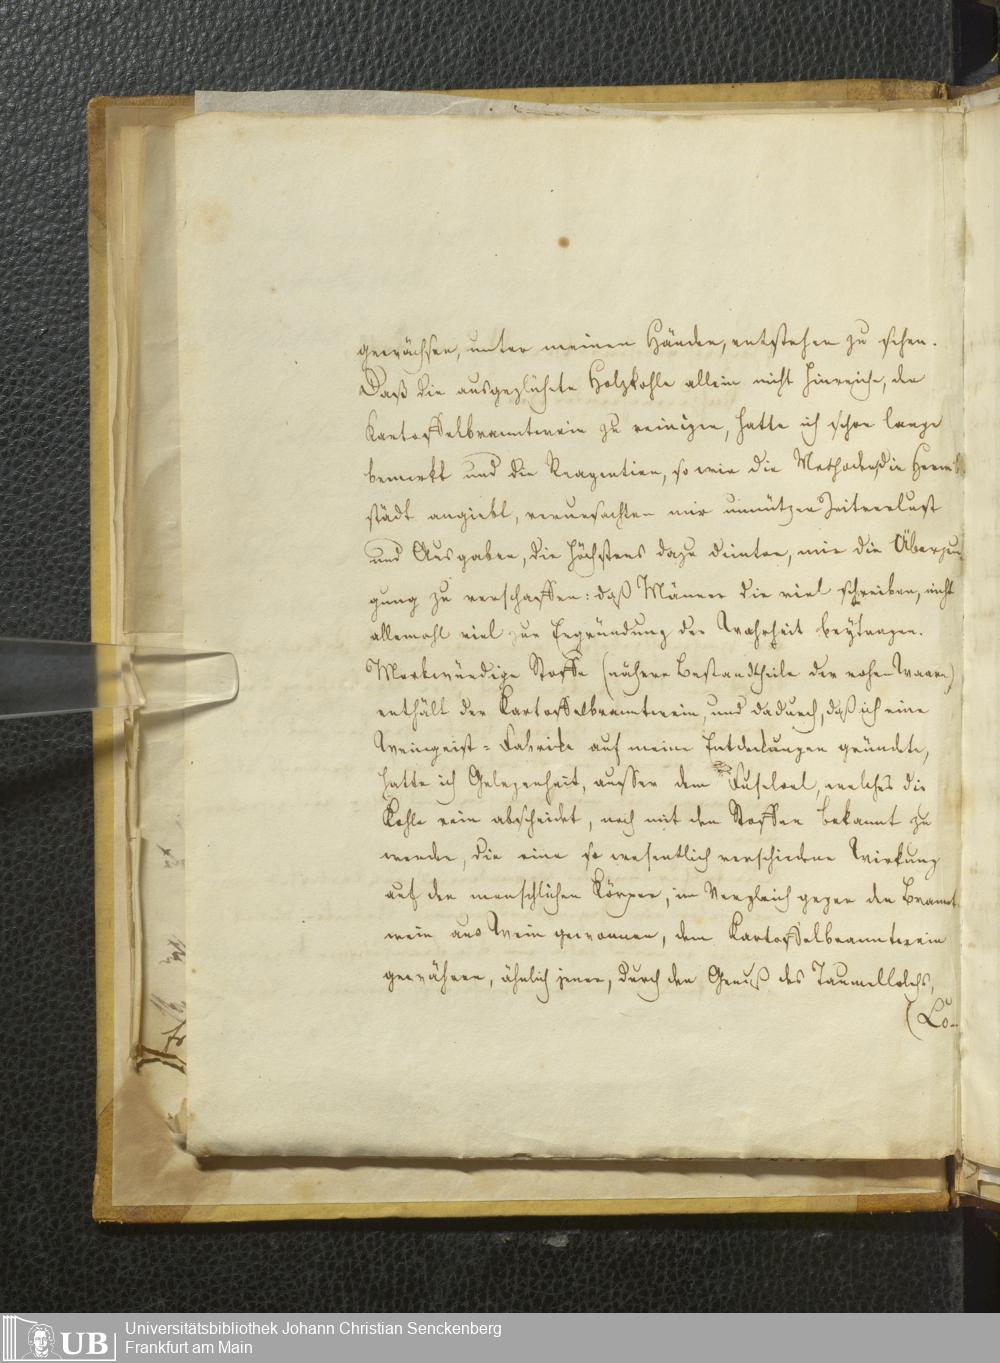 gewächsen, unter meinen Händen, entstehen zu sehen.
Daß die ausgeglühete Holzkohle allein nicht hinreiche, den
Kartoffelbranntwein zu reinigen, hatte ich schon lange
bemerkt und die Reagentien, so wie die Methoden, die Hermb-
städt angiebt, verursachten mir unnützen Zeitverlust
und Ausgaben, die höchstens dazu dienten, mir die Überzeu-
gung zu verschaffen: daß Männer die viel schreiben, nicht
allemahl viel zur Ergründung der Wahrheit beytragen.
Merkwürdige Stoffe (nähere Bestandtheile der rohen Waare)
enthält der Kartoffelbranntwein, und dadurch, daß ich eine
Weingeist-Fabrike auf meine Entdeckungen gründete,
hatte ich Gelegenheit, ausser dem Fuseloel, welches die
Kohle rein abscheidet, noch mit den Stoffen bekannt zu
werden, die eine so wesentlich verschiedene Wirkung
auf den menschlichen Körper, im Vergleich gegen den Brannt-
wein aus Wein gewonnen, dem Kartoffelbranntwein
gewähren, ähnlich jener, durch den Genuß des Taumellolchs,
(Lo-
UB
Universitätsbibliothek Johann Christian Senckenberg
Frankfurt am Main